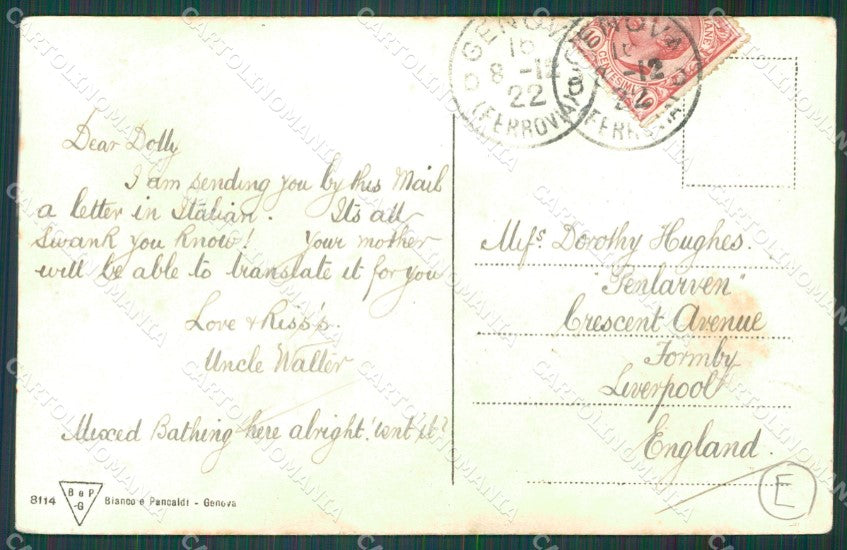 Dear Dolly
I am sending you by this Mail
a letter in Italian. Its all
Swank you know! Your mother
will be able to translate it for you
Love & Kiss's.
Uncle Walter
Mixed Bathing here alright 'isnt it?
8114 B e P -G Bianco e Pancaldi - Genova
GENOVA
16
8 -12
22
(FERROVIA)
GENOVA
16
-12
22
(FERROVIA)
10 CENTESIMI 10
Miss. Dorothy Hughes.
"Penlarven"
Crescent Avenue
Formby
Liverpool
England.
E
CARTOLINOMANIA